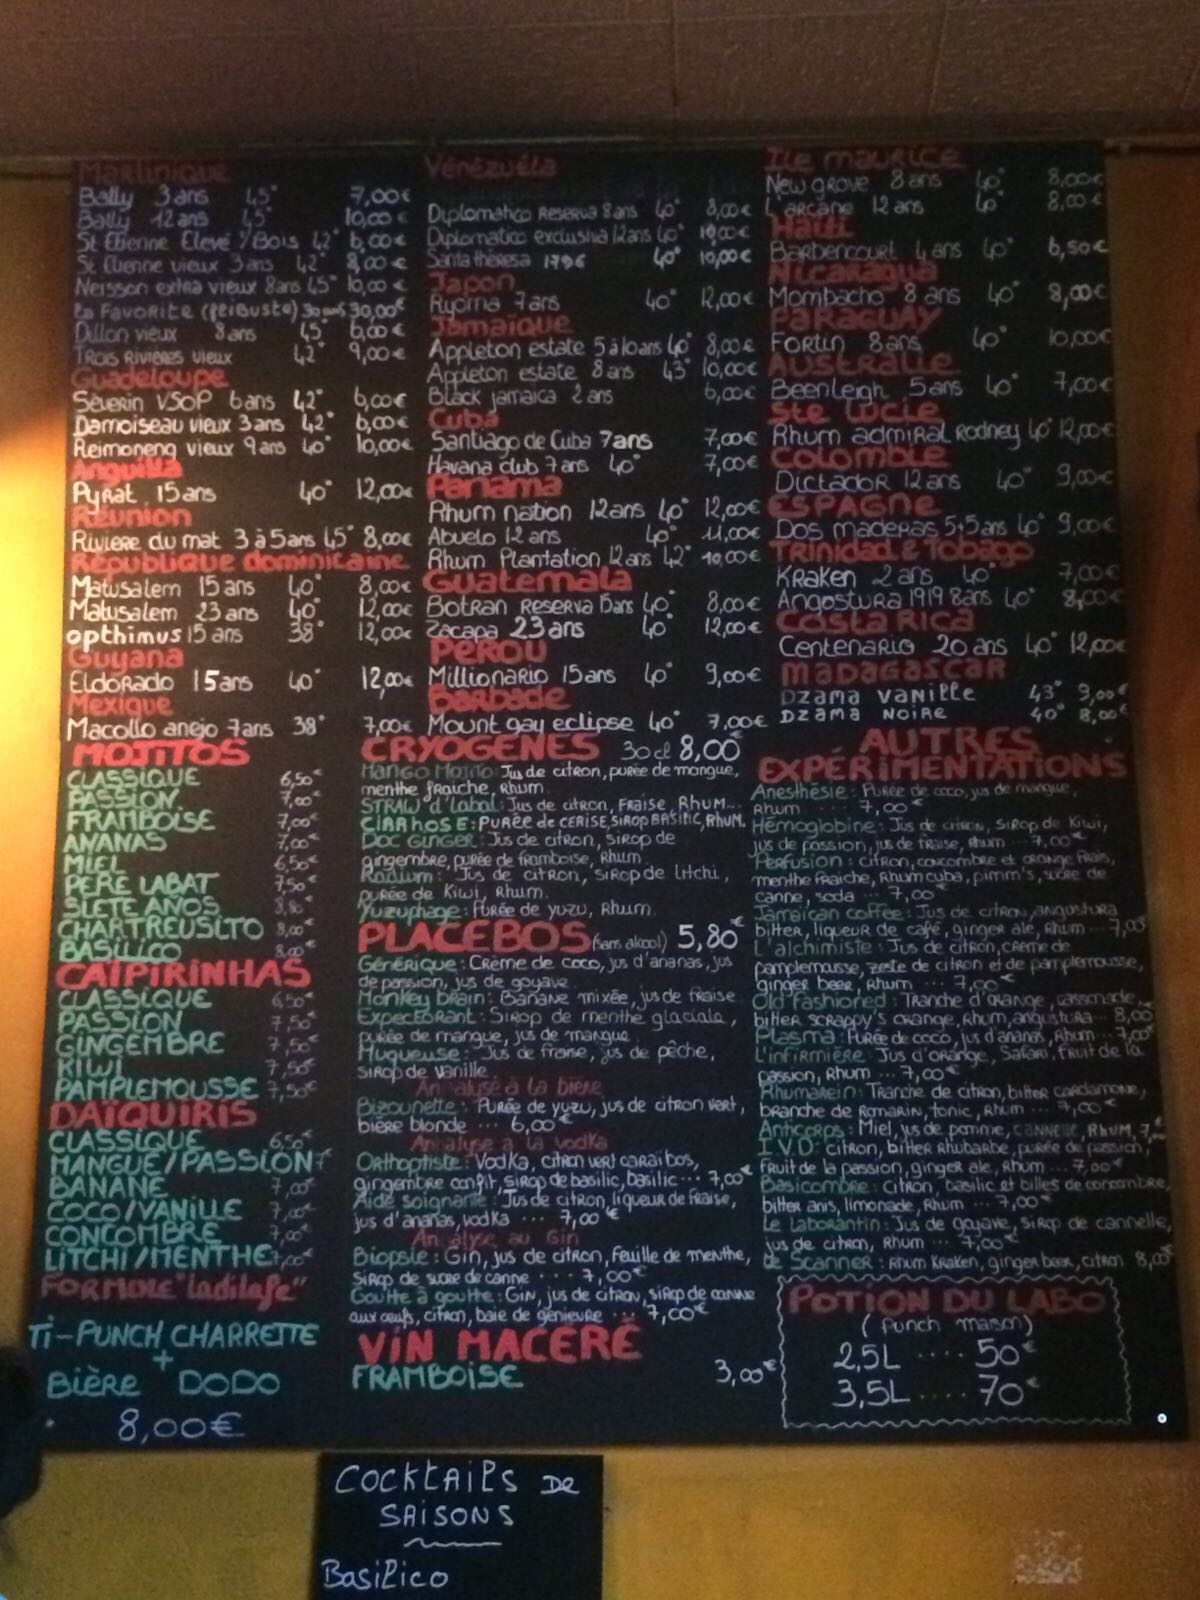 Martinique
Bally 3 ans 45° 7,00€
Bally 12 ans 45° 10,00€
St Etienne Elevé s/Bois 42° 6,00€
St Etienne vieux 3 ans 42° 8,00€
Neisson extra vieux 8 ans 45° 10,00€
La Favorite (flibuste) 30 ans 30,00€
Dillon vieux 8 ans 45° 6,00€
Trois Rivieres vieux 42° 9,00€
Guadeloupe
Séverin VSOP 6 ans 42° 6,00€
Damoiseau vieux 3 ans 42° 6,00€
Reimoneng vieux 9 ans 40° 10,00€
Anguilla
Pyrat 15 ans 40° 12,00€
Réunion
Riviere du mat 3 à 5 ans 45° 8,00€
République dominicaine
Matusalem 15 ans 40° 8,00€
Matusalem 23 ans 40° 12,00€
opthimus 15 ans 38° 12,00€
Guyana
Eldorado 15 ans 40° 12,00€
Mexique
Macollo anejo 7 ans 38° 7,00€
Vénézuéla
Diplomatico Reserva 8 ans 40° 8,00€
Diplomatico exclusiva 12 ans 40° 10,00€
Santa thèresa 1796 40° 10,00€
Japon
Ryoma 7 ans 40° 12,00€
Jamaïque
Appleton estate 5 à 10 ans 40° 8,00€
Appleton estate 8 ans 43° 10,00€
Black jamaica 2 ans 6,00€
Cuba
Santiago de Cuba 7 ans 7,00€
Havana club 7 ans 40° 7,00€
Panama
Rhum nation 12 ans 40° 12,00€
Abuelo 12 ans 40° 11,00€
Rhum Plantation 12 ans 42° 10,00€
Guatemala
Botran Reserva 15 ans 40° 8,00€
Zacapa 23 ans 40° 12,00€
Pérou
Millionario 15 ans 40° 9,00€
Barbade
Mount gay eclipse 40° 7,00€
Ile maurice
New grove 8 ans 40° 8,00€
L'arcane 12 ans 40° 8,00€
Haïti
Barbencourt 4 ans 40° 6,50€
Nicaragua
Mombacho 8 ans 40° 8,00€
Paraguay
Fortin 8 ans 40° 10,00€
Australie
Beenleigh 5 ans 40° 7,00€
Ste Lucie
Rhum admiral Rodney 40° 12,00€
Colombie
Dictador 12 ans 40° 9,00€
Espagne
Dos maderas 5+5 ans 40° 9,00€
Trinidad & Tobago
Kraken 2 ans 40° 7,00€
Angostura 1919 8 ans 40° 8,00€
Costa Rica
Centenario 20 ans 40° 12,00€
Madagascar
Dzama Vanille 43° 9,00€
Dzama Noire 40° 8,00€
MOJITOS
CLASSIQUE 6,50€
PASSION 7,00€
FRAMBOISE 7,00€
ANANAS 7,00€
MIEL 6,50€
PERE LABAT 7,50€
SIETE AÑOS 8,80€
CHARTREUSITO 8,00€
BASILICO 8,00€
CAÏPIRINHAS
CLASSIQUE 6,50€
PASSION 7,50€
GINGEMBRE 7,50€
KIWI 7,50€
PAMPLEMOUSSE 7,50€
DAÏQUIRIS
CLASSIQUE 6,50€
MANGUE/PASSION 7
BANANE 7,00€
COCO/VANILLE 7,00€
CONCOMBRE 7,00€
LITCHI/MENTHE 7,00€
FORMULE "ladilafe"
Ti-PUNCH CHARRETTE
+
Bière DODO
8,00€
CRYOGENES 30 cl 8,00€
Mango Mojito: Jus de citron, purée de mangue,
menthe fraiche, Rhum
STRAW d'labal: Jus de citron, Fraise, Rhum...
CIRRhOSE: PURÉE de CERISE, SIROP BASILIC, RHUM.
Doc Ginger: Jus de citron, sirop de
gingembre, purée de framboise, Rhum
Radium: Jus de citron, sirop de Litchi,
purée de Kiwi, Rhum.
Yuzuphage: Purée de yuzu, Rhum.
PLACEBOS (sans alcool) 5,80€
Générique: Crème de coco, jus d'ananas, jus
de passion, jus de goyave
Monkey brain: Banane mixée, jus de fraise
Expectorant: Sirop de menthe glaciale,
purée de mangue, jus de mangue
Muqueuse: Jus de fraise, jus de pêche,
sirop de vanille
Analyse à la bière
Bizounette: Purée de yuzu, jus de citron vert,
bière blonde ... 6,00€
Analyse à la vodka
Orthoptiste: Vodka, citron vert caraïbos,
gingembre confit, sirop de basilic, basilic ... 7,00€
Aide soignante: Jus de citron, liqueur de fraise,
jus d'ananas, vodka ... 7,00€
Analyse au Gin
Biopsie: Gin, jus de citron, feuille de menthe,
sirop de sucre de canne .... 7,00€
Goutte à goutte: Gin, jus de citron, sirop de canne
aux œufs, citron, baie de genievre ... 7,00€
VIN MACÉRÉ
FRAMBOISE 3,00€
AUTRES
EXPÉRIMENTATIONS
Anesthésie: Purée de coco, jus de mangue,
Rhum ........ 7,00€
Hémoglobine: Jus de citron, sirop de Kiwi,
jus de passion, jus de fraise, Rhum ... 7,00€
Perfusion: citron, concombre et orange frais,
menthe fraiche, Rhum cuba, pimm's, sucre de
canne, soda ... 7,00€
Jamaican coffee: Jus de citron, angustura
bitter, liqueur de café, ginger ale, Rhum ... 7,00€
L'alchimiste: Jus de citron, crème de
pamplemousse, zeste de citron et de pamplemousse,
ginger beer, Rhum ... 7,00€
Old Fashioned: Tranche d'orange, cassonade,
bitter scrappy's orange, Rhum, angustura ... 8,00
Plasma: Purée de coco, jus d'ananas, Rhum ... 7,00€
L'infirmière: Jus d'orange, Safari, fruit de la
passion, Rhum ... 7,00€
Rhumarein: Tranche de citron, bitter cardamome,
branche de Romarin, tonic, Rhum ... 7,00€
Anticorps: Miel, jus de pomme, cannelle, Rhum, 7,00
I.V.D: citron, bitter Rhubarbe, purée de passion,
fruit de la passion, ginger ale, Rhum ... 7,00€
Basicombre: Citron, basilic et billes de concombre,
bitter anis, limonade, Rhum ... 7,00€
Le laborantin: Jus de goyave, sirop de cannelle,
jus de citron, Rhum ... 7,00€
Le Scanner: Rhum Kraken, ginger beer, citron 8,00€
POTION DU LABO
(punch maison)
2,5L .... 50€
3,5L .... 70€
COCKTAILS DE
SAISONS
Basilico